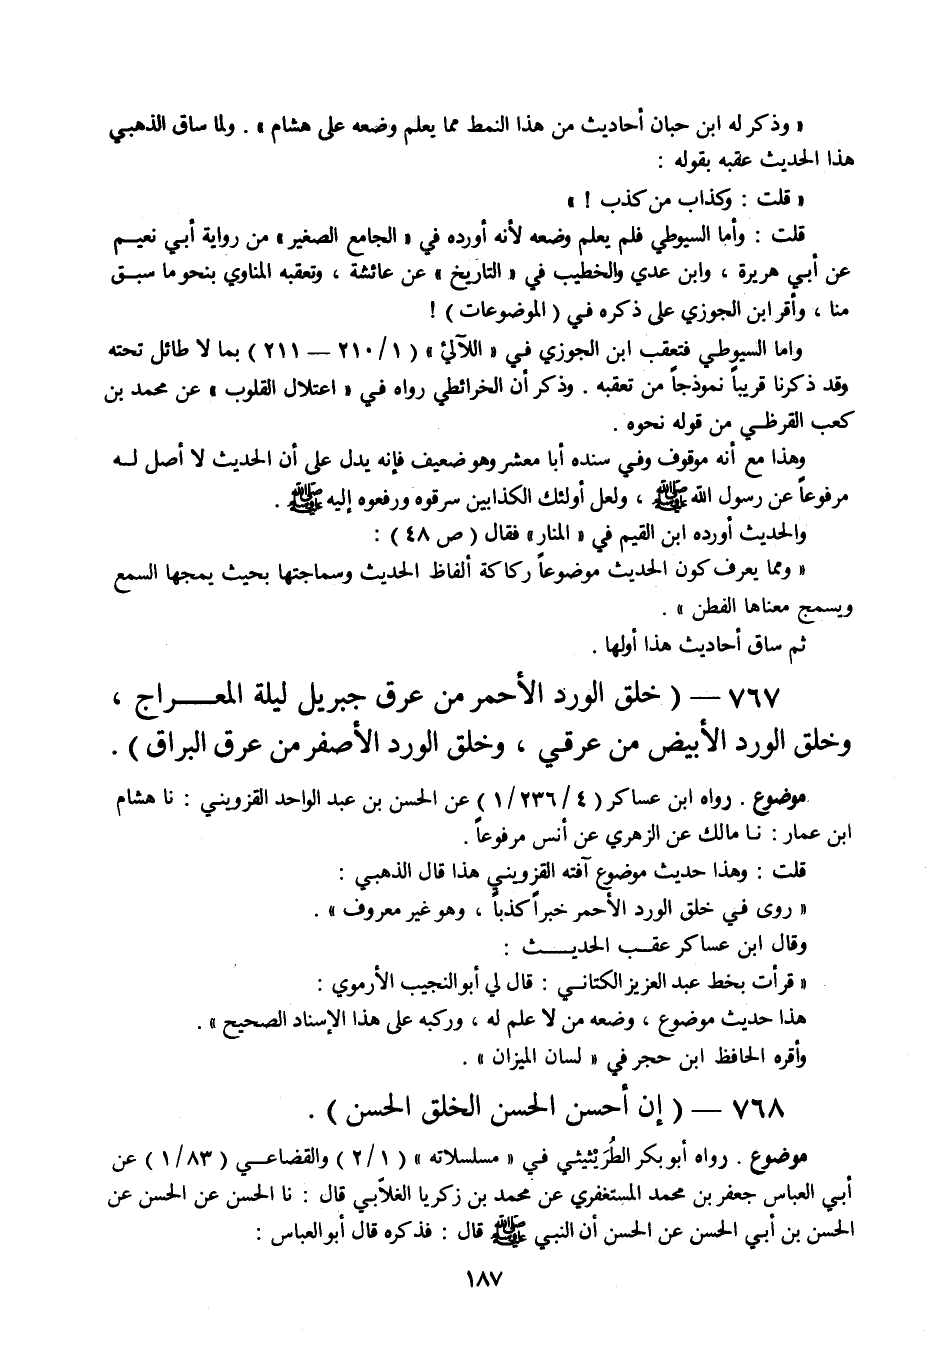 « وذكر له ابن حبان أحاديث من هذا النمط مما يعلم وضعه على هشام » . ولما ساق الذهبي
هذا الحديث عقبه بقوله :
« قلت : وكذاب من كذب ! »
قلت : وأما السيوطي فلم يعلم وضعه لأنه أورده في « الجامع الصغير » من رواية أبي نعيم
عن أبي هريرة ، وابن عدي والخطيب في « التاريخ » عن عائشة ، وتعقبه المناوي بنحو ما سبق
منا ، وأقر ابن الجوزي على ذكره في ( الموضوعات ) !
واما السيوطي فتعقب ابن الجوزي في « اللآلئ » ( ١/ ٢١٠ — ٢١١ ) بما لا طائل تحته
وقد ذكرنا قريباً نموذجاً من تعقبه . وذكر أن الخرائطي رواه في « اعتلال القلوب » عن محمد بن
كعب القرظي من قوله نحوه .
وهذا مع أنه موقوف وفي سنده أبا معشر وهو ضعيف فإنه يدل على أن الحديث لا أصل له
مرفوعاً عن رسول الله ﷺ ، ولعل أولئك الكذابين سرقوه ورفعوه إليه ﷺ .
والحديث أورده ابن القيم في « المنار » فقال ( ص ٤٨ ) :
« ومما يعرف كون الحديث موضوعاً ركاكة ألفاظ الحديث وسماجتها بحيث يمجها السمع
ويسمج معناها الفطن » .
ثم ساق أحاديث هذا أولها .
٧٦٧ — ( خلق الورد الأحمر من عرق جبريل ليلة المعراج ،
وخلق الورد الأبيض من عرقي ، وخلق الورد الأصفر من عرق البراق ) .
موضوع . رواه ابن عساكر ( ٤ / ٢٣٦ / ١ ) عن الحسن بن عبد الواحد القزويني : نا هشام
ابن عمار : نا مالك عن الزهري عن أنس مرفوعاً .
قلت : وهذا حديث موضوع آفته القزويني هذا قال الذهبي :
« روى في خلق الورد الأحمر خبراً كذباً ، وهو غير معروف » .
وقال ابن عساكر عقب الحديث :
« قرأت بخط عبد العزيز الكتاني : قال لي أبو النجيب الأرموي :
هذا حديث موضوع ، وضعه من لا علم له ، وركبه على هذا الإسناد الصحيح » .
وأقره الحافظ ابن حجر في « لسان الميزان » .
٧٦٨ — ( إن أحسن الحسن الخلق الحسن ) .
موضوع . رواه أبو بكر الطُرَيْثيثي في « مسلسلاته » ( ١ / ٢ ) والقضاعي ( ٨٣ / ١ ) عن
أبي العباس جعفر بن محمد المستغفري عن محمد بن زكريا الغلاّبي قال : نا الحسن عن الحسن عن
الحسن بن أبي الحسن عن الحسن أن النبي ﷺ قال : فذكره قال أبو العباس :
١٨٧